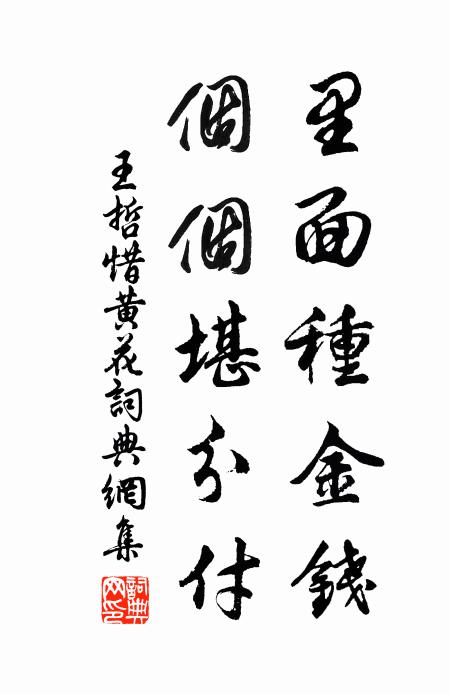 里面種金錢
個個堪分付
王哲惜黄花詞典網集
詞典網印